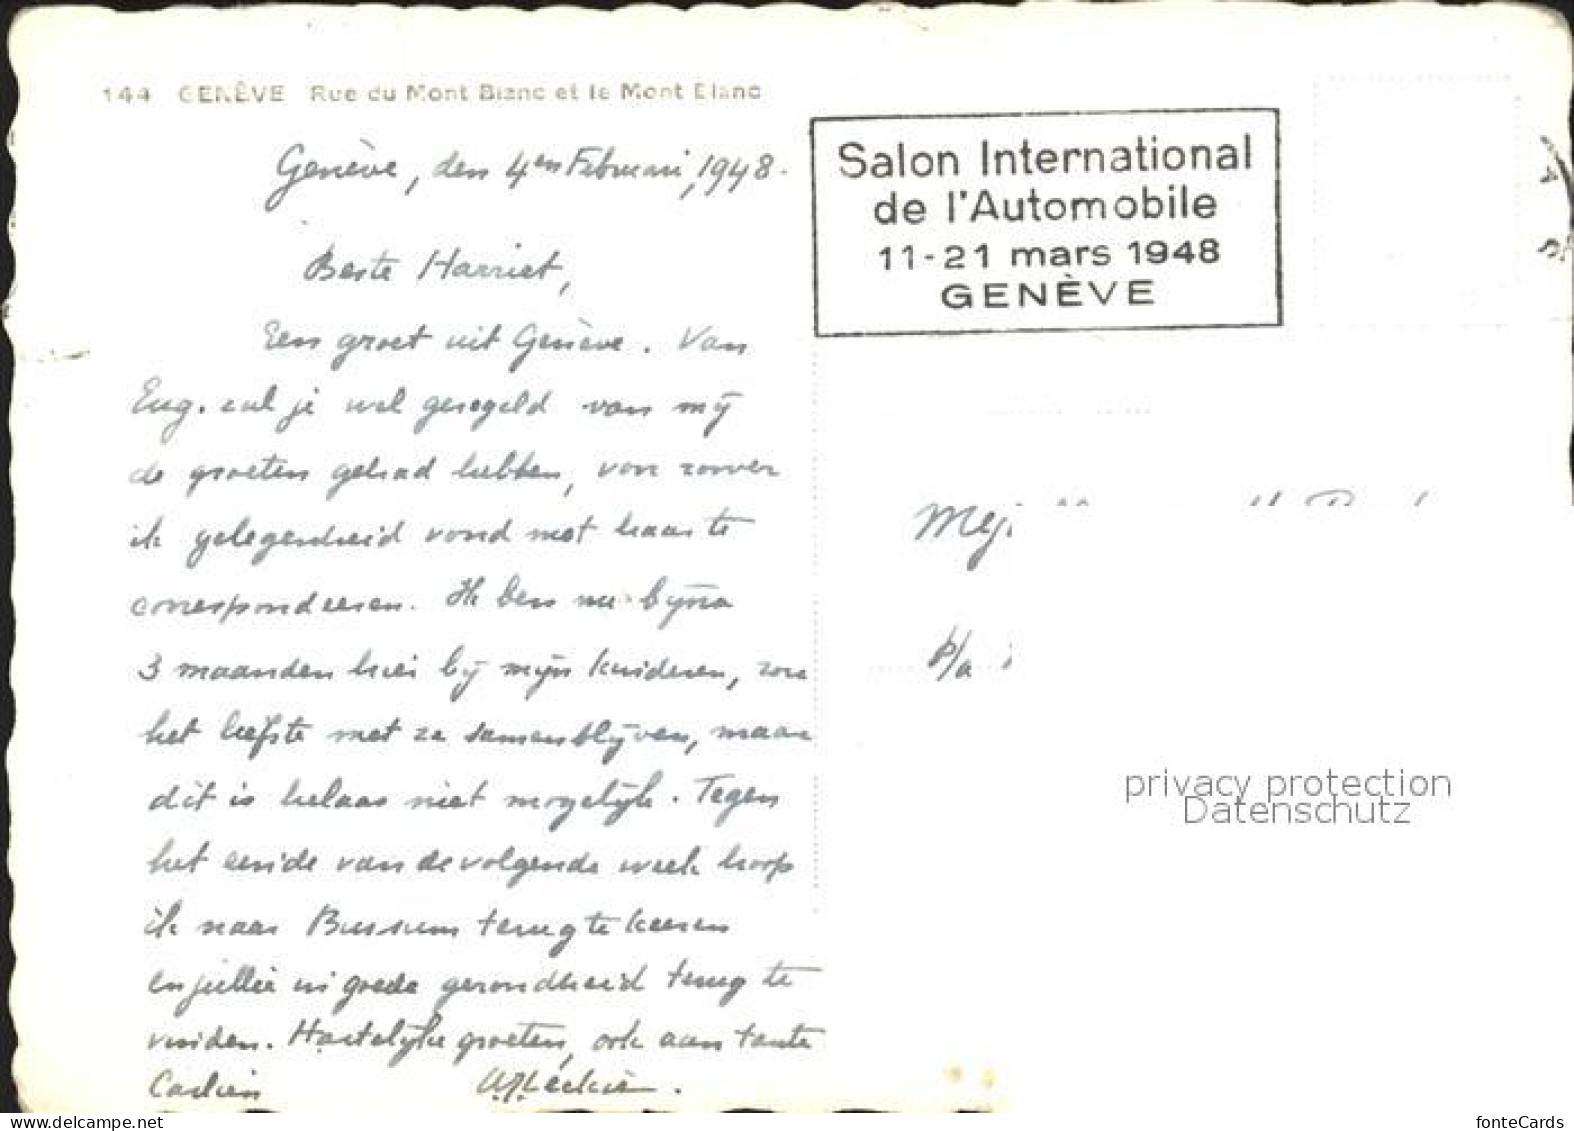 144 GENÈVE Rue du Mont Blanc et le Mont Blanc
Genève, den 4en Februari, 1948.
Salon International
de l'Automobile
11-21 mars 1948
GENÈVE
Beste Harriet,
Een groet uit Genève. Van
Eug. zul je wel geregeld van mij
de groeten gehad hebben, voor zoover
ik gelegenheid vond met haar te
correspondeeren. Ik ben nu bijna
3 maanden hier bij mijn kinderen, zou
het liefste met ze samenblijven, maar
dit is helaas niet mogelijk. Tegen
het einde van de volgende week hoop
ik naar Bussum terug te keeren
en jullie in goede gezondheid terug te
vinden. Hartelijke groeten, ook aan tante
p/a
privacy protection
Datenschutz
delcampe.net
fonteCards